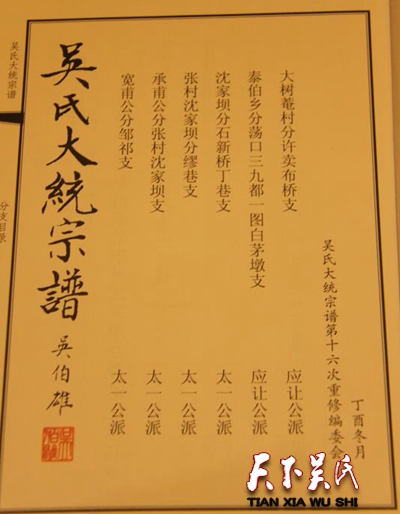 丁酉冬月
吴氏大统宗谱第十六次重修编委会
大树菴村分许卖布桥支 应让公派
泰伯乡分荡口三九都一图白茅墩支 应让公派
沈家坝分石新桥丁巷支 太一公派
张村沈家坝分缪巷支 太一公派
承甫公分张村沈家坝支 太一公派
宽甫公分邹祁支 太一公派
吳氏大統宗譜
吴伯雄
吴氏大统宗谱
分支目录
天下吴氏
TIAN XIA WU SHI